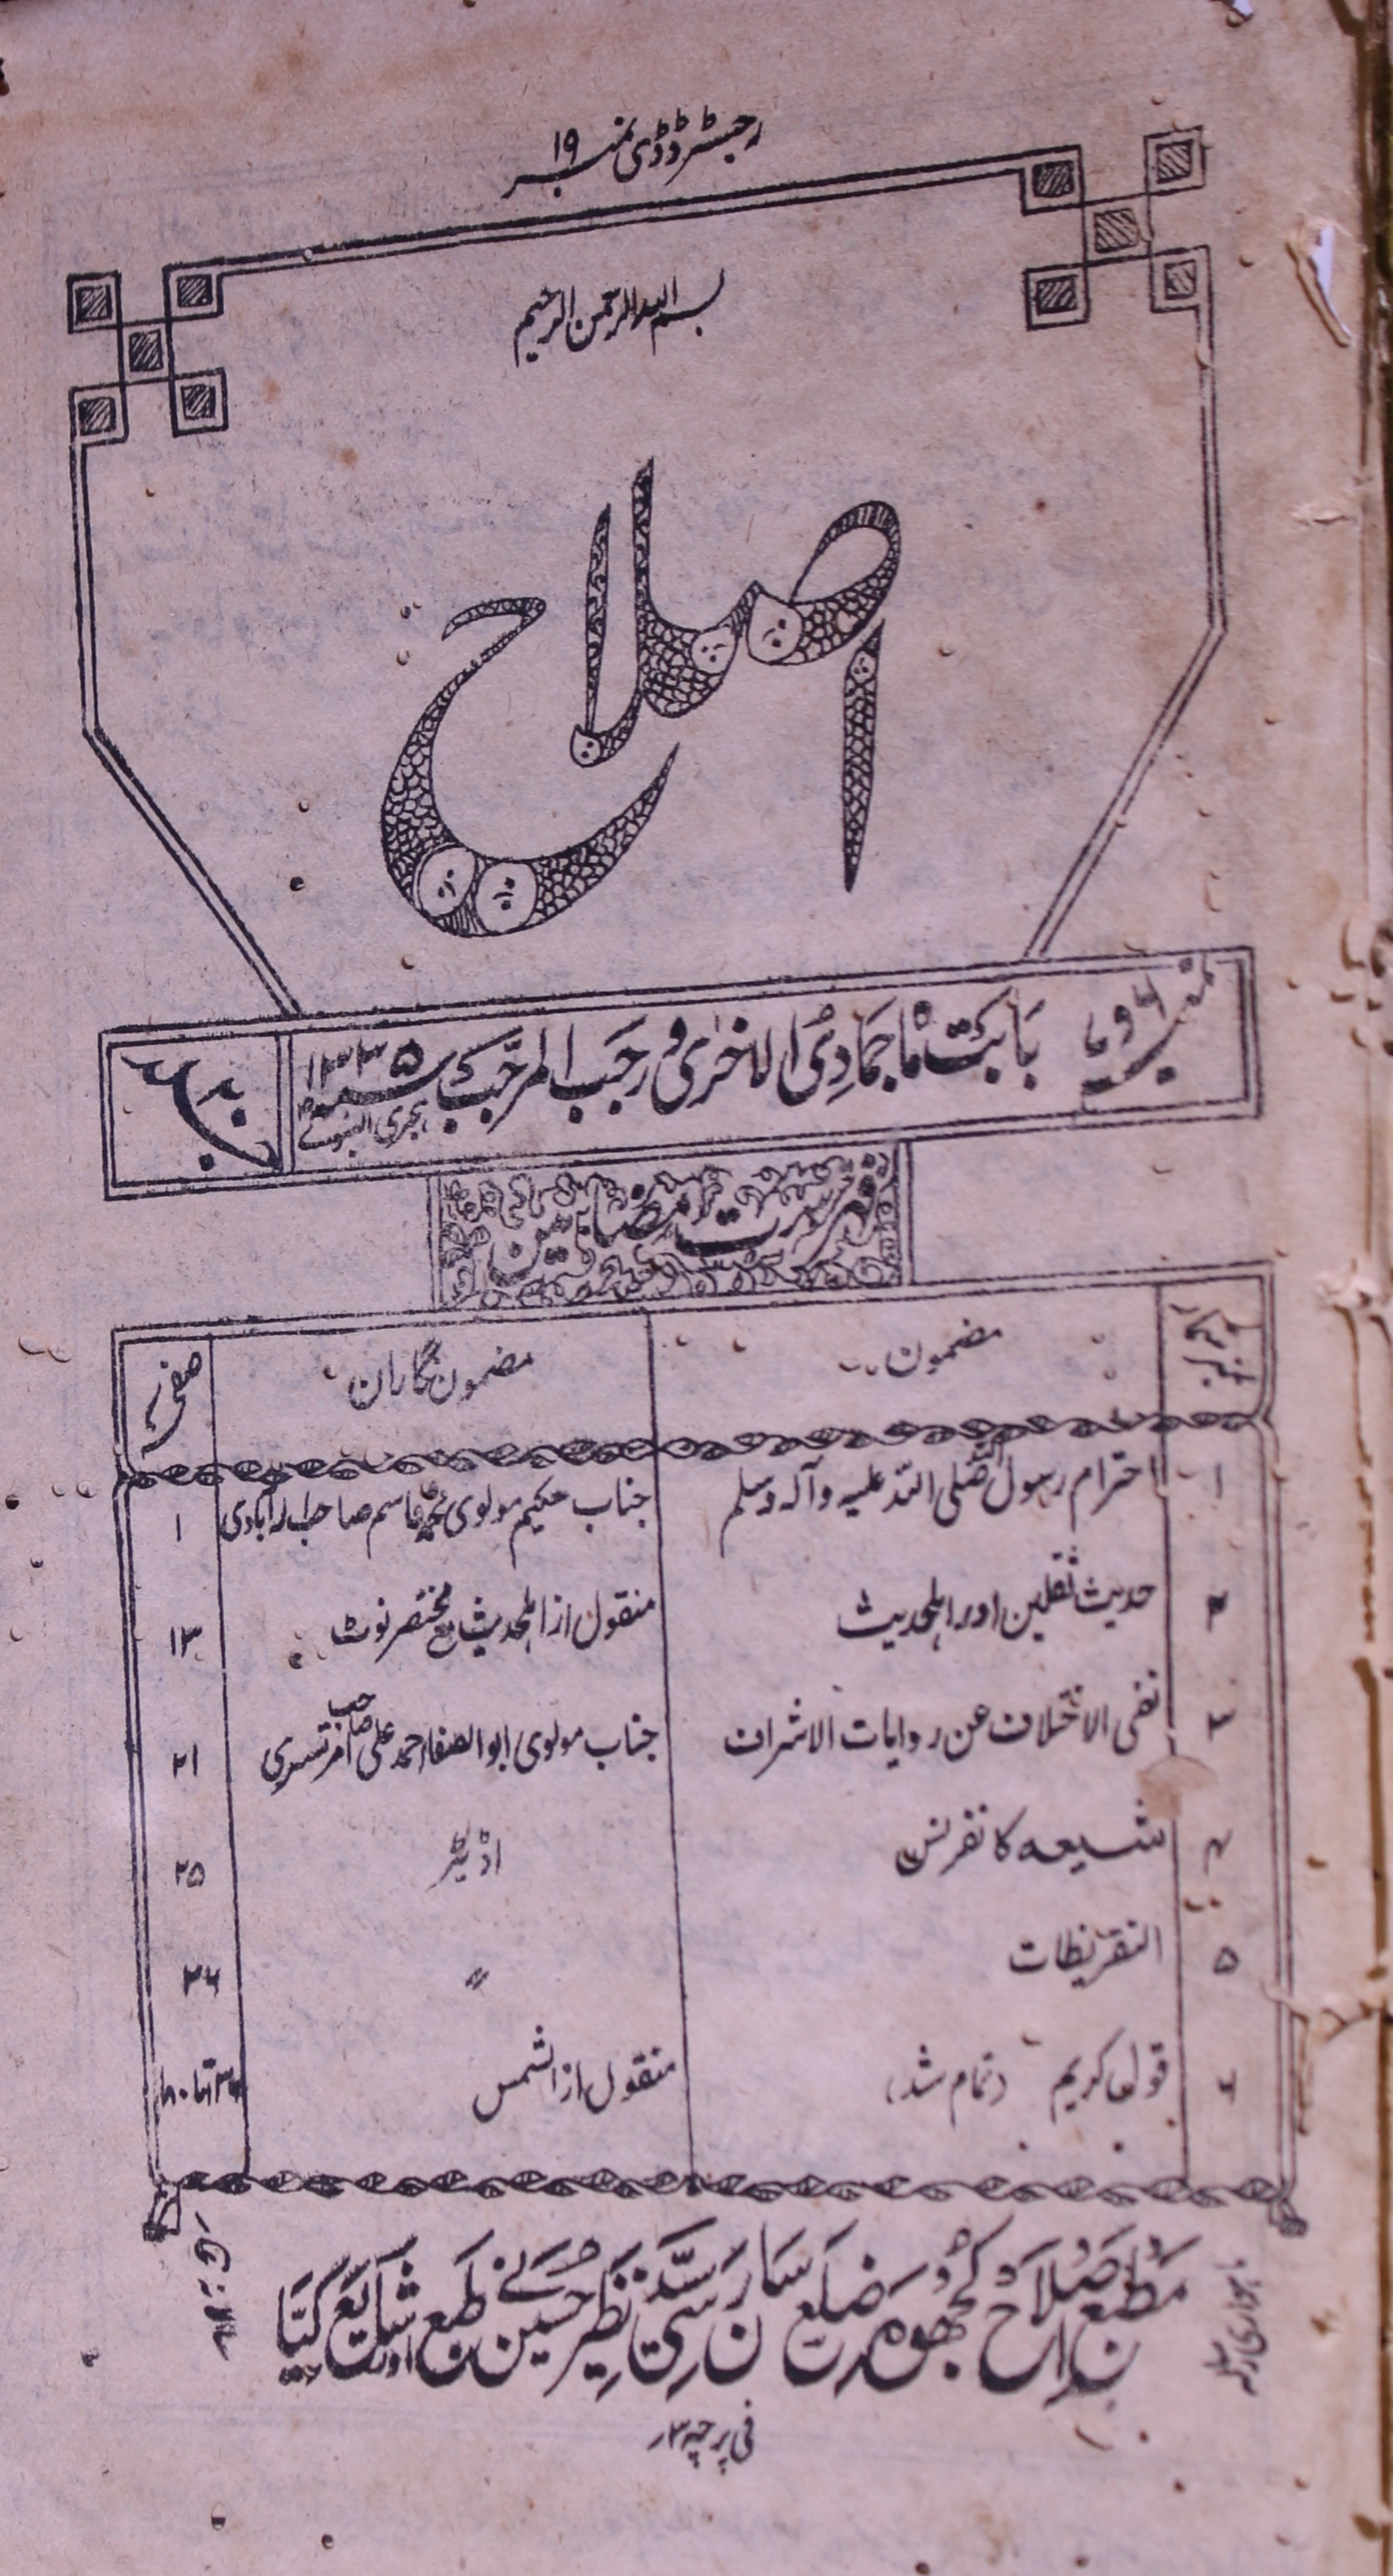 رجسٹرڈ ڈی نمبر ۱۹
بسم اللہ الرحمن الرحیم
اصلاح
نمبر ۶ و ۷ بابت ماہ جمادی الاخری و رجب المرجب سنہ ۱۳۳۵ ہجری النبوی
جلد
فہرست مضامین
نمبر شمار مضمون مضمون نگاران صفحہ
۱ احترام رسول اللہ صلی اللہ علیہ وآلہ وسلم جناب حکیم مولوی محمد قاسم صاحب ۱
۲ حدیث ثقلین اور اہلحدیث منقول از اہلحدیث مع مختصر نوٹ ۱۳
۳ نفی الاختلاف عن روایات الاشراف جناب مولوی ابوالصفا احمد علی صاحب امرتسری ۲۱
۴ شیعہ کانفرنس اڈیٹر ۲۵
۵ التقریظات 〃 ۳۶
۶ قول کریم (تمام شد) منقول از الشمس
مطبع اصلاح کھجوہ ضلع سارن سے سید نظیر حسین نے طبع اور شایع کیا
فی پرچہ ۳؍